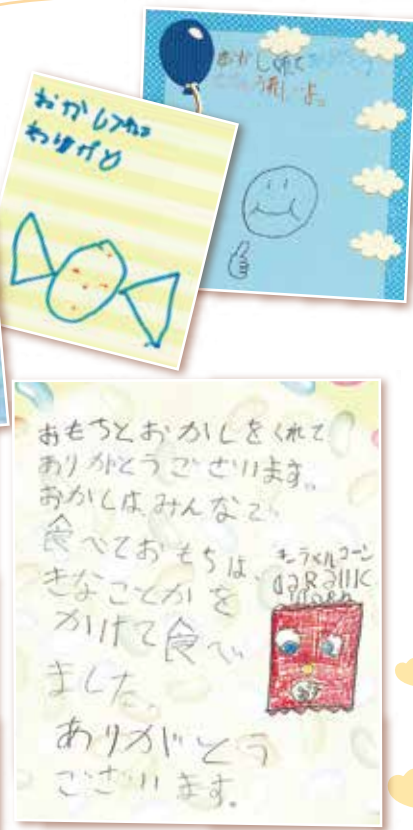 おかしくれて
うれしいよ。
おかしくれて
ありがと
おもちとおかしをくれて
ありがとうございます。
おかしは、みんなで
食べておもちは、
きなことかを
かけて食べ
ました。
ありがとう
ございます。
キャラメルコーン